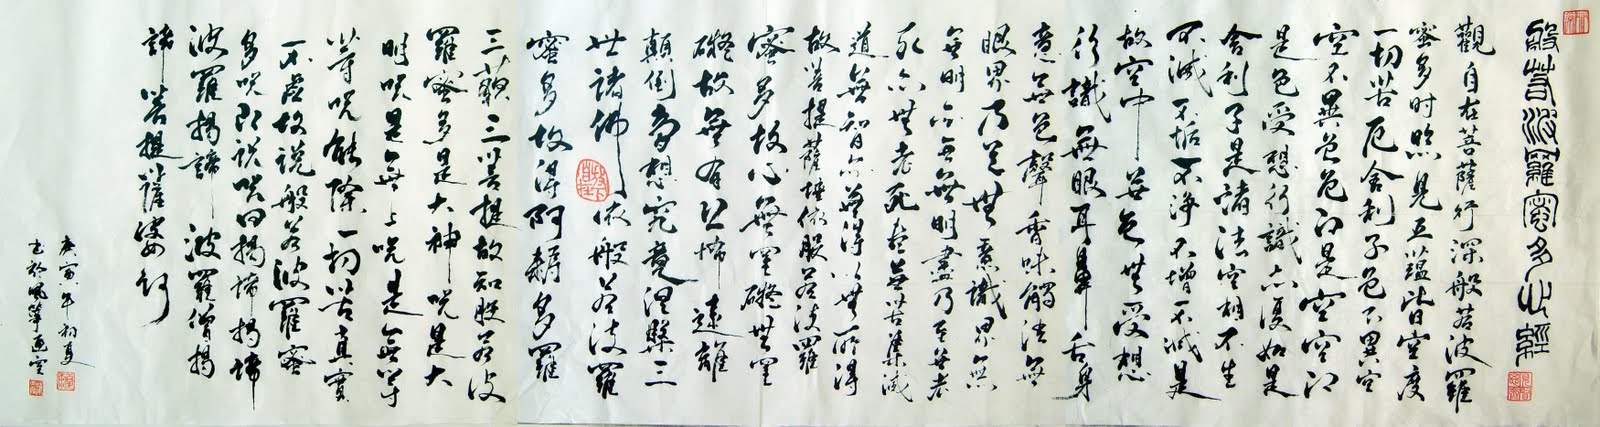 般若波羅蜜多心經
觀自在菩薩行深般若波羅
蜜多時照見五蘊皆空度
一切苦厄舍利子色不異空
空不異色色即是空空即
是色受想行識亦復如是
舍利子是諸法空相不生
不滅不垢不淨不增不減是
故空中無色無受想
行識無眼耳鼻舌身
意無色聲香味觸法無
眼界乃至無意識界無
無明亦無無明盡乃至無老
死亦無老死盡無苦集滅
道無智亦無得以無所得
故菩提薩埵依般若波羅
蜜多故心無罣礙無罣
礙故無有恐怖遠離
顛倒夢想究竟涅槃三
世諸佛依般若波羅
蜜多故得阿耨多羅
三藐三菩提故知般若波
羅蜜多是大神咒是大
明咒是無上咒是無等
等咒能除一切苦真實
不虛故說般若波羅蜜
多咒即說咒曰揭帝揭帝
波羅揭諦波羅僧揭
諦菩提薩婆訶
庚寅年初夏
書於風箏畫室